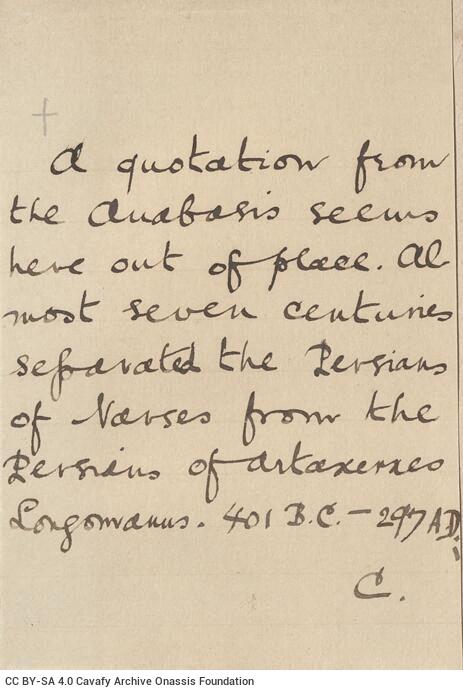 A quotation from
the Anabasis seems
here out of place. Al
most seven centuries
separated the Persians
of Narses from the
Persians of Artaxerxes
Longomanus. 401 B.C. – 297 AD.
C.
CC BY-SA 4.0 Cavafy Archive Onassis Foundation